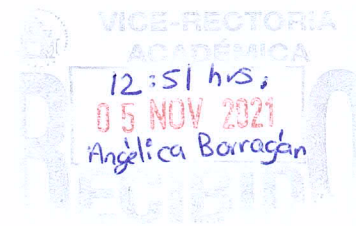 VICE-RECTORIA
ACADÉMICA
12:51 hrs,
05 NOV 2021
Angélica Borragán
RECIBIDO